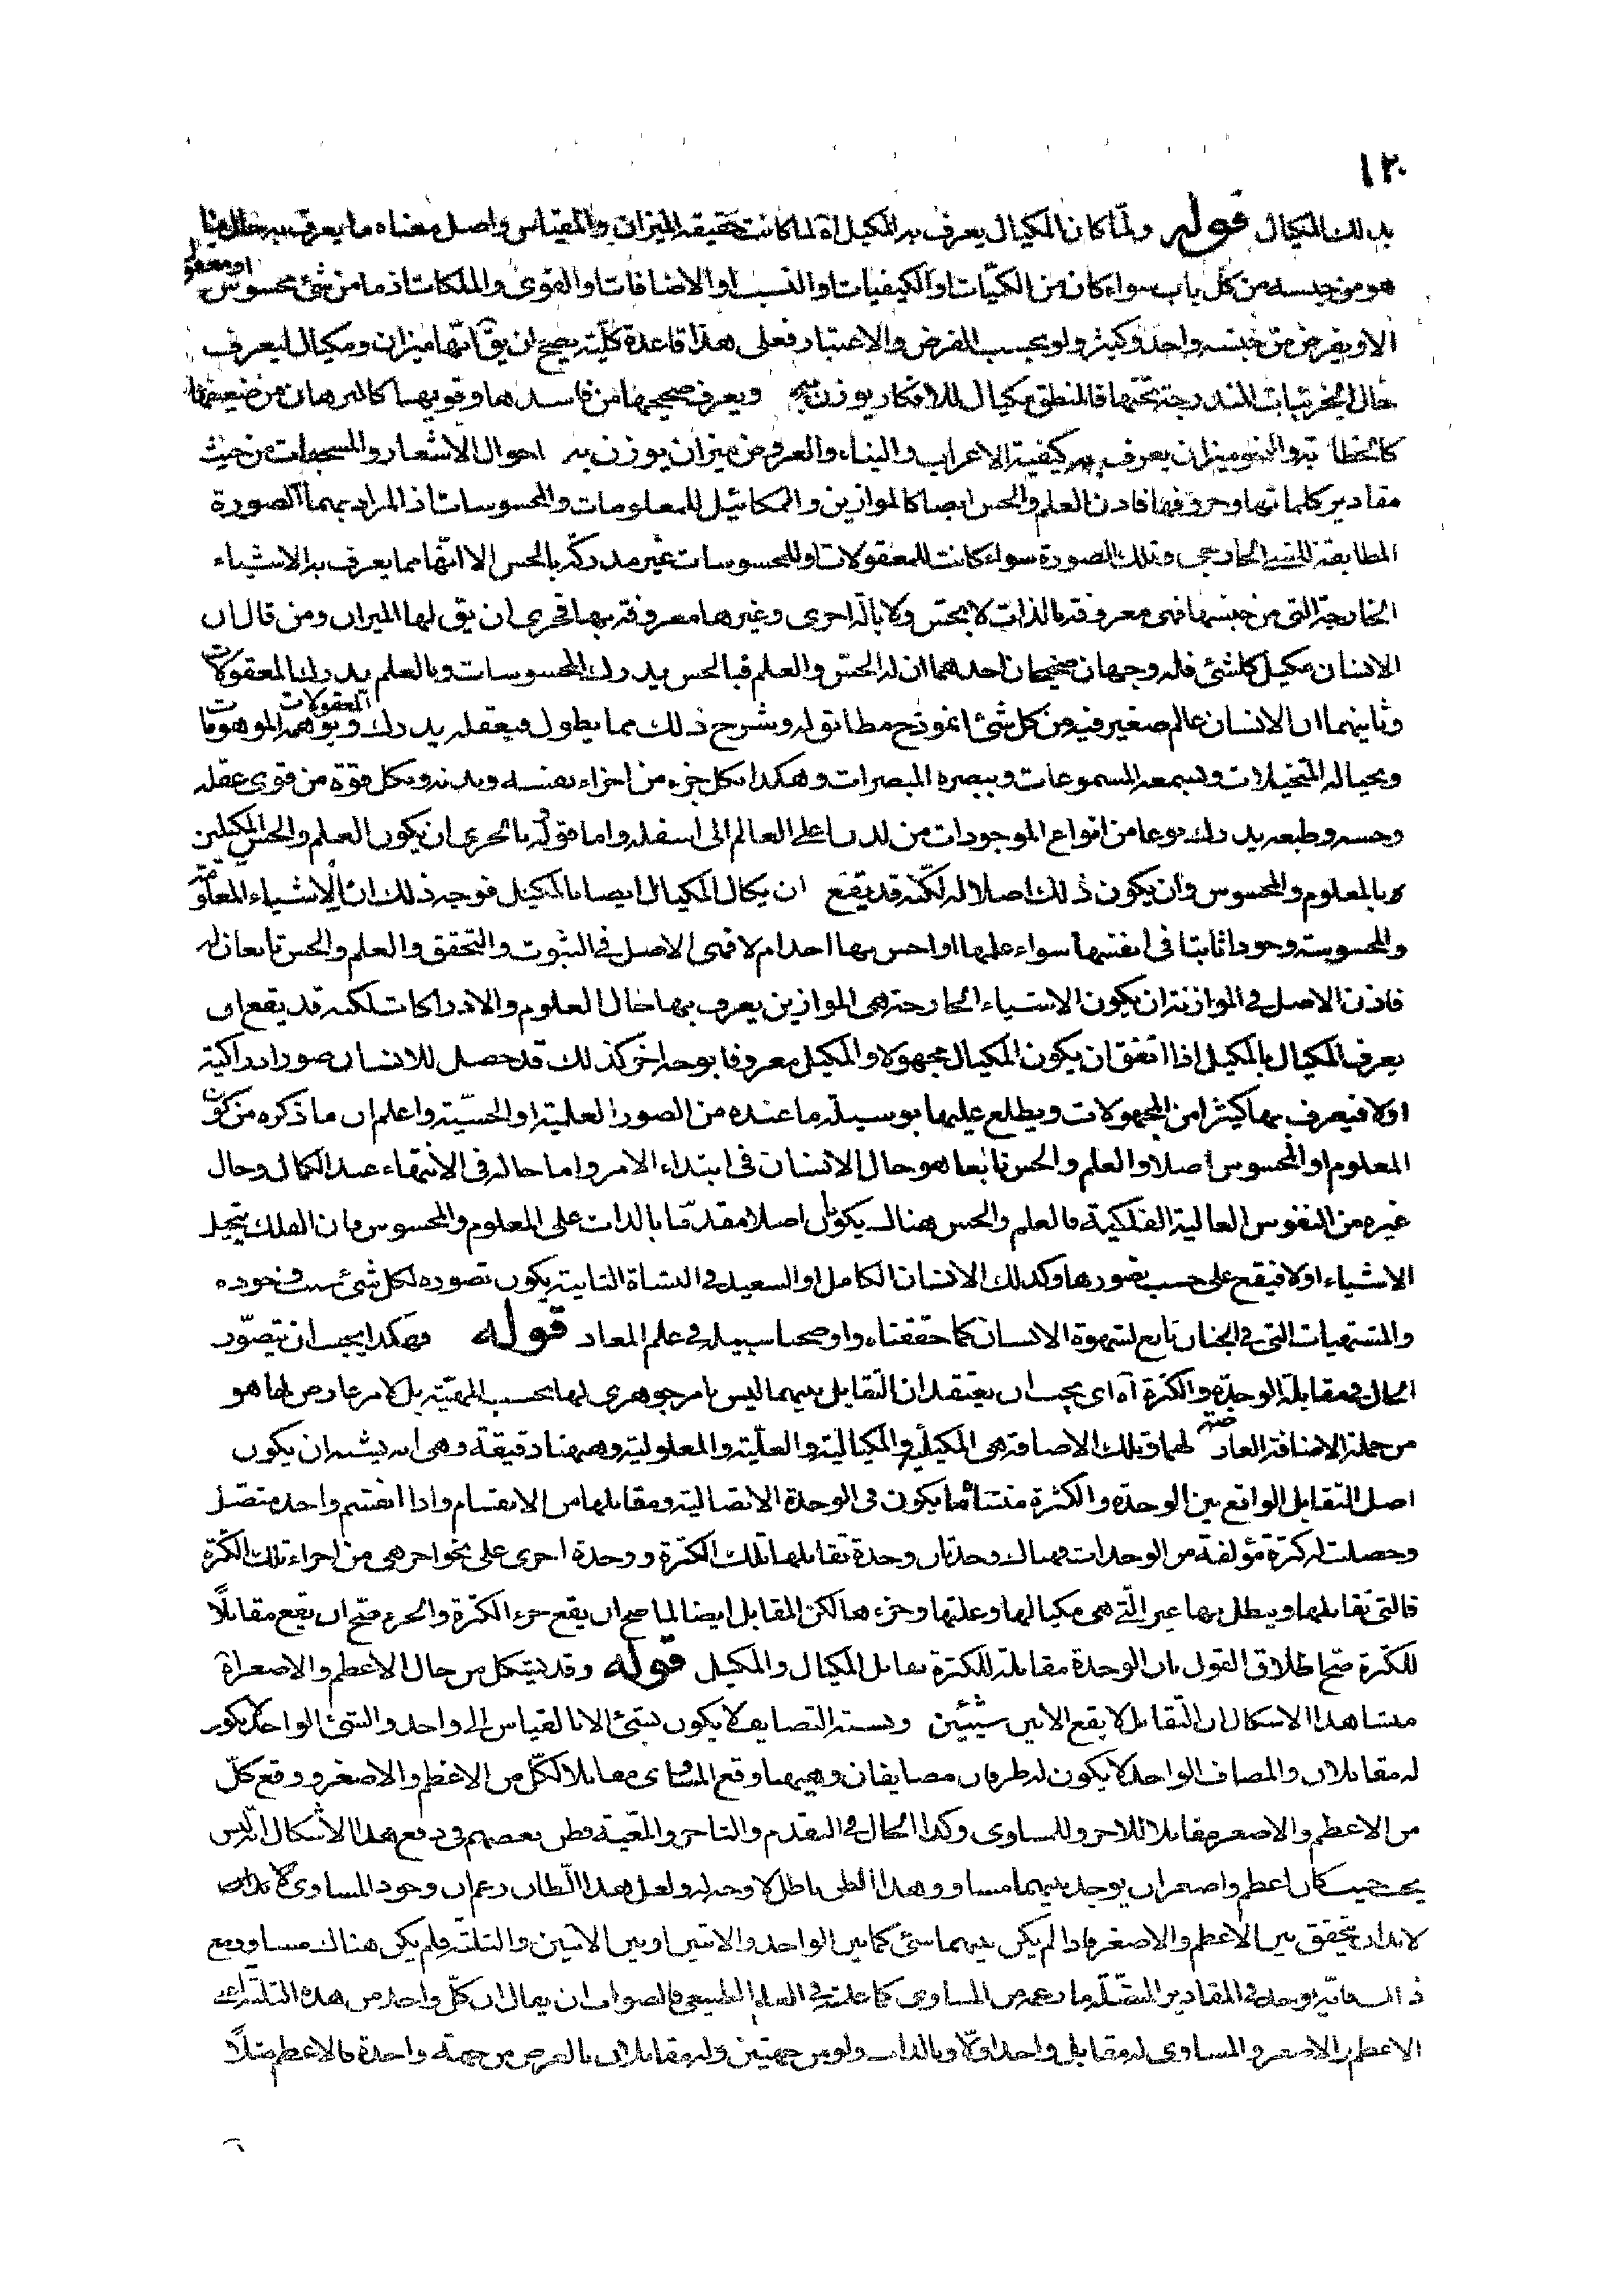 ١٢٠
بذلك المكيال قوله ولمّا كان المكيال يعرف به المكيل اه لما كانت حقيقة الميزان والمقياس واصل معناه ما يعرف به حال ما
هو من جنسه من كل باب سواء كان من الكميّات او الكيفيات او النسب او الاضافات او القوى والملكات اذ ما من شئ محسوس او معقول
الا ويفرض من جنسه واحد وكثير ولو بحسب الفرض والاعتبار فعلى هذا قاعدة كليّة يصح ان يقّ انّها ميزان ومكيال ليعرف
حال الجزئيات المندرجة تحتها فالمنطق مكيال للافكار يوزن به ويعرف صحيحها من فاسدها وقويها كالبرهان من ضعيفها
كالخطابة والنحو ميزان يعرف به كيفية الاعراب والبناء والعروض ميزان يوزن به احوال الاشعار والمسجعات من حيث
مقادير كلماتها وحروفها فاذن العلم والحس ايضا كالموازين والمكائيل للمعلومات والمحسوسات اذ المراد بهما الصورة
المطابقة للشئ الخارجى وتلك الصورة سواء كانت للمعقولات او للمحسوسات غير مدركة بالحس الا انّها مما يعرف به الاشياء
الخارجة التى من جنسها فهى معروفة بالذات لا بحس ولا بالة اخرى وغيرها معروفة بها فحرى ان يقّ لها الميزان ومن قال ان
الانسان مكيل كلشئ فله وجهان صحيحان احدهما ان له الحس والعلم فبالحس يدرك المحسوسات وبالعلم يدرك المعقولات
وثانيهما ان الانسان عالم صغير فيه من كل شئ انموذج مطابق له وشرح ذلك مما يطول فبعقله يدرك المعقولات وبوهمه الموهومات
وبخياله المتخيلات وبسمعه المسموعات وببصره المبصرات وهكذا بكل جزء من اجزاء نفسه وبدنه وبكل قوة من قوى عقله
وحسه وطبعه يدرك نوعا من انواع الموجودات من لدن اعلى العالم الى اسفله واما قوله بالحرى ان يكون العلم والحس المكيلين
بالمعلوم والمحسوس وان يكون ذلك اصلا له لكنّه قد يقع ان يكال المكيال ايضا بالمكيل فوجه ذلك ان الاشياء المعلومة
والمحسوسة وجودا ثابتا فى انفسها سواء علمها او احس بها احد ام لا فهى الاصل فى الثبوت والتحقق والعلم والحس تابعان له
فاذن الاصل فى الموازنة ان يكون الاشياء الخارجة هى الموازين يعرف بها حال العلوم والادراكات لكنه قد يقع ان
يعرف المكيال بالمكيل اذا اتفق ان يكون المكيال مجهولا والمكيل معروفا بوجه اخر كذلك قد حصل للانسان صور ادراكية
اولا فيعرف بها كثيرا من المجهولات ويطلع عليها بوسيلة ما عنده من الصور العلمية او الحسيّة واعلم ان ما ذكره من كون
المعلوم او المحسوس اصلا والعلم والحس تابعا هو حال الانسان فى ابتداء الامر واما حاله فى الانتهاء عند الكمال وحال
غيره من النفوس العالية الفلكية فالعلم والحس هناك يكون اصلا مقدّما بالذات على المعلوم والمحسوس فان الفلك يتخيل
الاشياء اولا فيقع على حسب تصورها وكذلك الانسان الكامل او السعيد فى النشاة الثانية يكون تصوره لكل شئ سبب وجوده
والمشتهيات التى فى الجنان تابع لشهوة الانسان كما حققناه واوضحنا سبيله فى علم المعاد قوله فهكذا يجب ان يتصوّر
الحال فى مقابلة الوحدة والكثرة آه اى يجب ان يعتقد ان التقابل بينهما ليس بامر جوهرى لها بحسب المهيّة بل لامر عارض لها هو
من جملة الاضافة العارضة لهما وتلك الاضافة هى المكيلية والمكيالية والعلّية والمعلولية وههنا دقيقة وهى انه يشبه ان يكون
اصل التقابل الواقع بين الوحدة والكثرة منشأه ما يكون فى الوحدة الاتصالية ومقابلها من الانقسام واذا انقسم واحد متصل
وحصلت له كثرة مؤلفة من الوحدات فهناك وحدتان وحدة تقابلها تلك الكثرة ووحدة اخرى على نحو اخر هى من اجزاء تلك الكثرة
فالتى تقابلها ويبطل بها غير الّتى هى مكيالها وعلتها وجزءها لكن المقابل ايضا لما صح ان يقع جزء الكثرة والجزء صّح ان يقع مقابلًا
للكثرة صّح اطلاق القول بان الوحدة مقابلة للكثرة تقابل المكيال والمكيل قوله وقد يشكل من حال الاعظم والاصغر اة
منشا هذا الاشكال ان التقابل لا يقع الا بين شيئين ونسبة التضايف لا يكون لشئ الا بالقياس الى واحد والشئ الواحد لا يكون
له مقابلان والمضاف الواحد لا يكون له طرفان مضايفان وهيهنا وقع المساوى مقابلا لكلّ من الاعظم والاصغر ووقع كلّ
من الاعظم والاصغر مقابلا للاخر وللمساوى وكذا الحال فى التقدم والتاخر والمعّية فظن بعضهم فى دفع هذا الاشكال انه ليس
يجب حيث كان اعظم واصغر ان يوجد بينهما مساو وهذا الظن باطل لا وجه له ولعل هذا الظان زعم ان وجود المساوى
لا بد ان يتحقق بين الاعظم والاصغر واذا لم يكن بينهما شئ كما بين الواحد والاثنين او بين الاثنين والثلثة ولم يكن هناك مساو ومع
ذلك فانّه يوجد فى المقادير المتّصلة ما زعم من المساوى كما علمت فى العلم الطبيعى فالصواب ان يقال ان كلّ واحد من هذه الثلثة اعنى
الاعظم والاصغر والمساوى له مقابل واحد اولّا وبالذات ولو من جهتين وله مقابلان بالعرض من جهة واحدة فالاعظم مثلًا